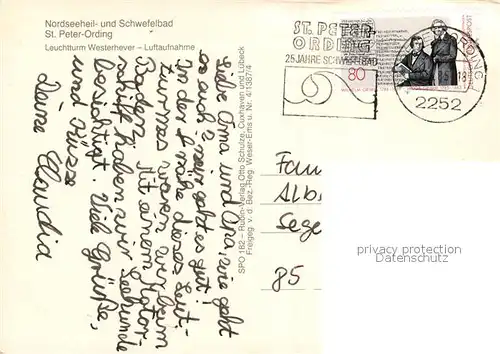 Nordseeheil- und Schwefelbad
St. Peter-Ording
Leuchtturm Westerhever – Luftaufnahme
Liebe Oma und Opa, wie geht
es euch? Mir geht es gut!
In der Nähe dieses Leut-
turmes waren wir beim
Baden. Mit einem Motor-
schiff haben wir Seehunde
besichtigt. Viele Grüße,
und Küsse
Deine Claudia
SPO 182 – Rubin-Verlag Otto Schulze, Cuxhaven und Lübeck
Freigeg. v. d. Bez.-Reg. Weser-Ems u. Nr. 4/1387/4
ST. PETER-
ORDING
25 JAHRE SCHWEFELBAD
80
ORDING
18
2252
Fam
Alb.
Sege
85
privacy protection
Datenschutz